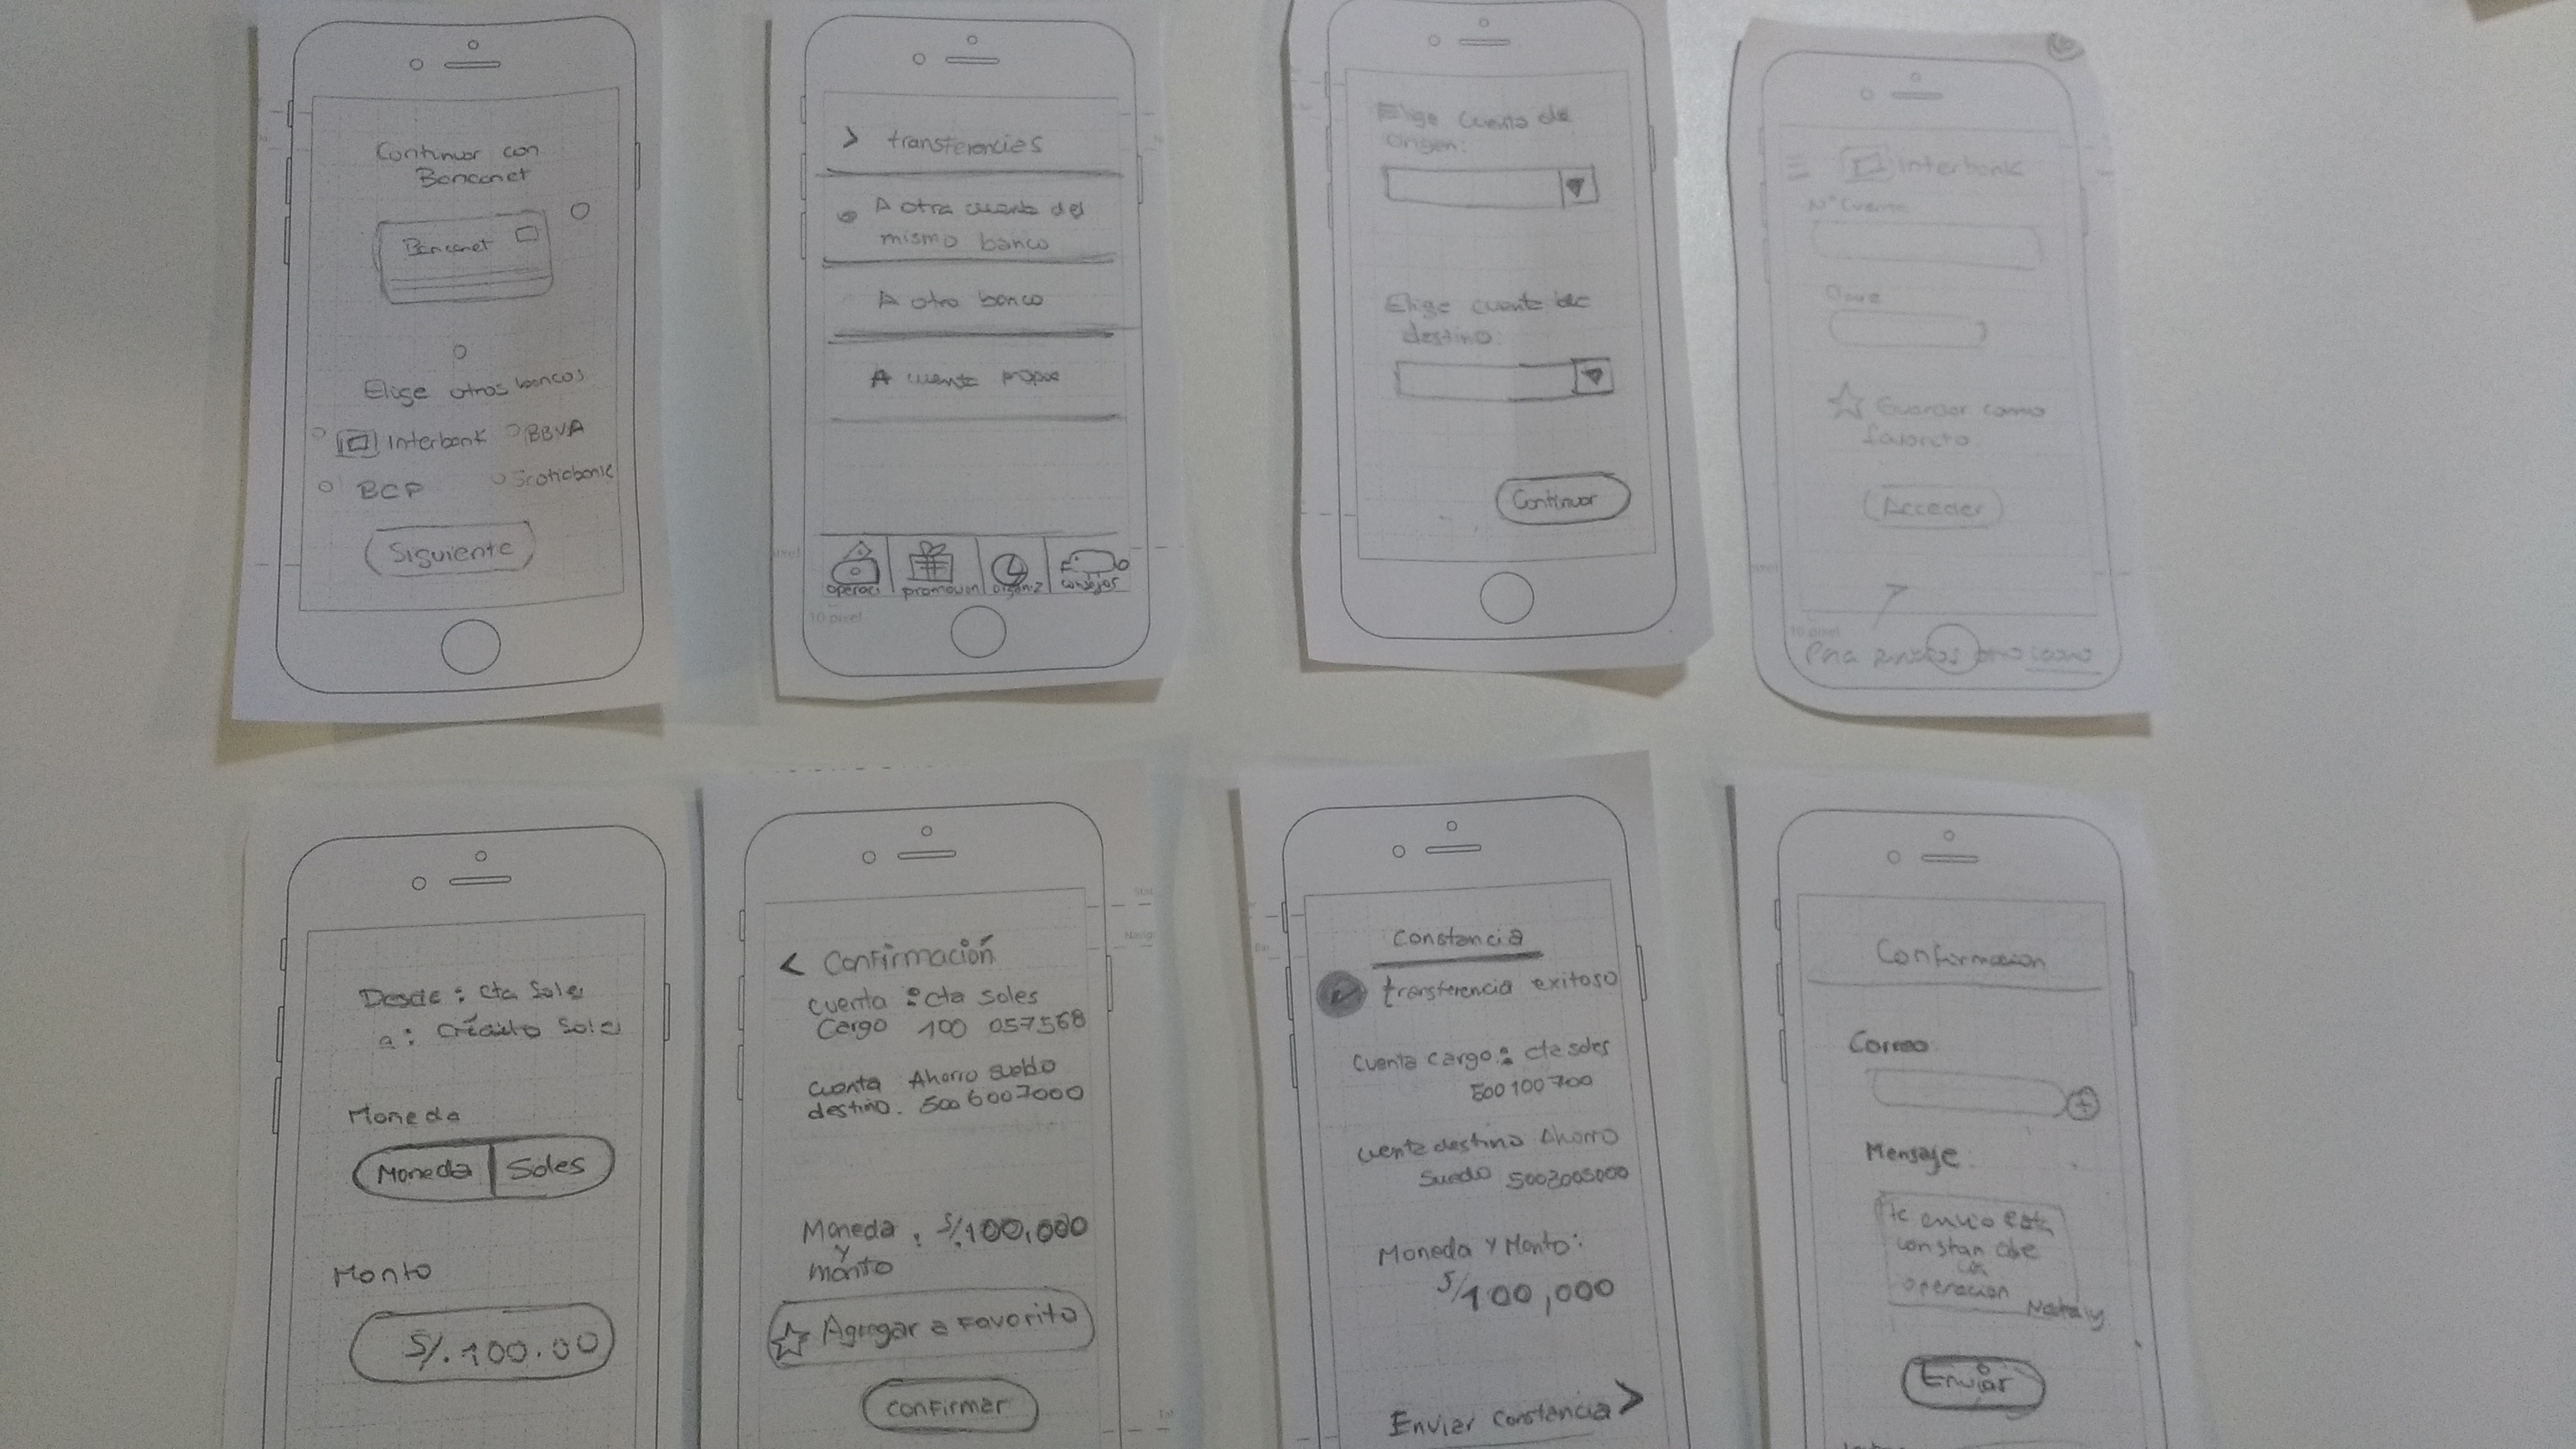 Continuar con
Bancanet
Bancanet
Elige otros bancos
Interbank
BBVA
BCP
Scotiabank
Siguiente
transferencies
A otra cuenta del
mismo banco
A otro banco
A cuenta propia
operaci
promocion
organiz
consejos
10 pixel
Elige cuenta de
origen:
Elige cuenta de
destino:
Continuar
Interbank
N° Cuenta
Clave
Guardar como
favorito
Acceder
10 pixel
Para
Desde : cta Soles
a : Crédito Soles
Moneda
Moneda
Soles
Monto
S/. 100.00
< Confirmación
cuenta : cta soles
Cargo 100 057568
cuenta Ahorro sueldo
destino. 500 6007000
Moneda : S/.100,000
y
monto
Agregar a Favorito
Confirmar
Constancia
transferencia exitosa
Cuenta cargo : cta soles
500100700
cuenta destino Ahorro
Sueldo 5002005000
Moneda Y Monto:
S/100,000
Enviar Constancia >
Confirmacion
Correo
Mensaje.
Te envio esta
constan de
operacion
Nataly
Enviar